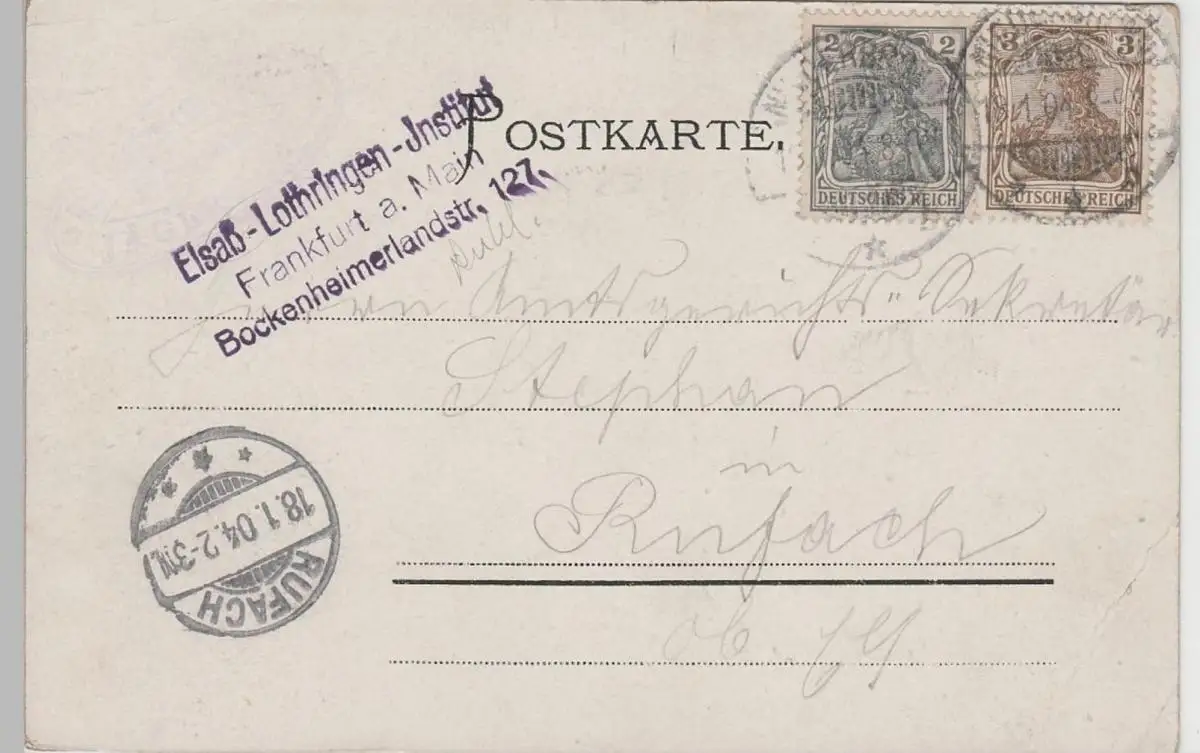 2 2
DEUTSCHES REICH
3 3
DEUTSCHES REICH
POSTKARTE.
Elsaß-Lothringen-Institut
Frankfurt a. Main
Bockenheimerlandstr. 127.
Herrn Amtsgerichts-Sekretär
Stephan
in
Rufach
18.1.04.2-3N.
RUFACH